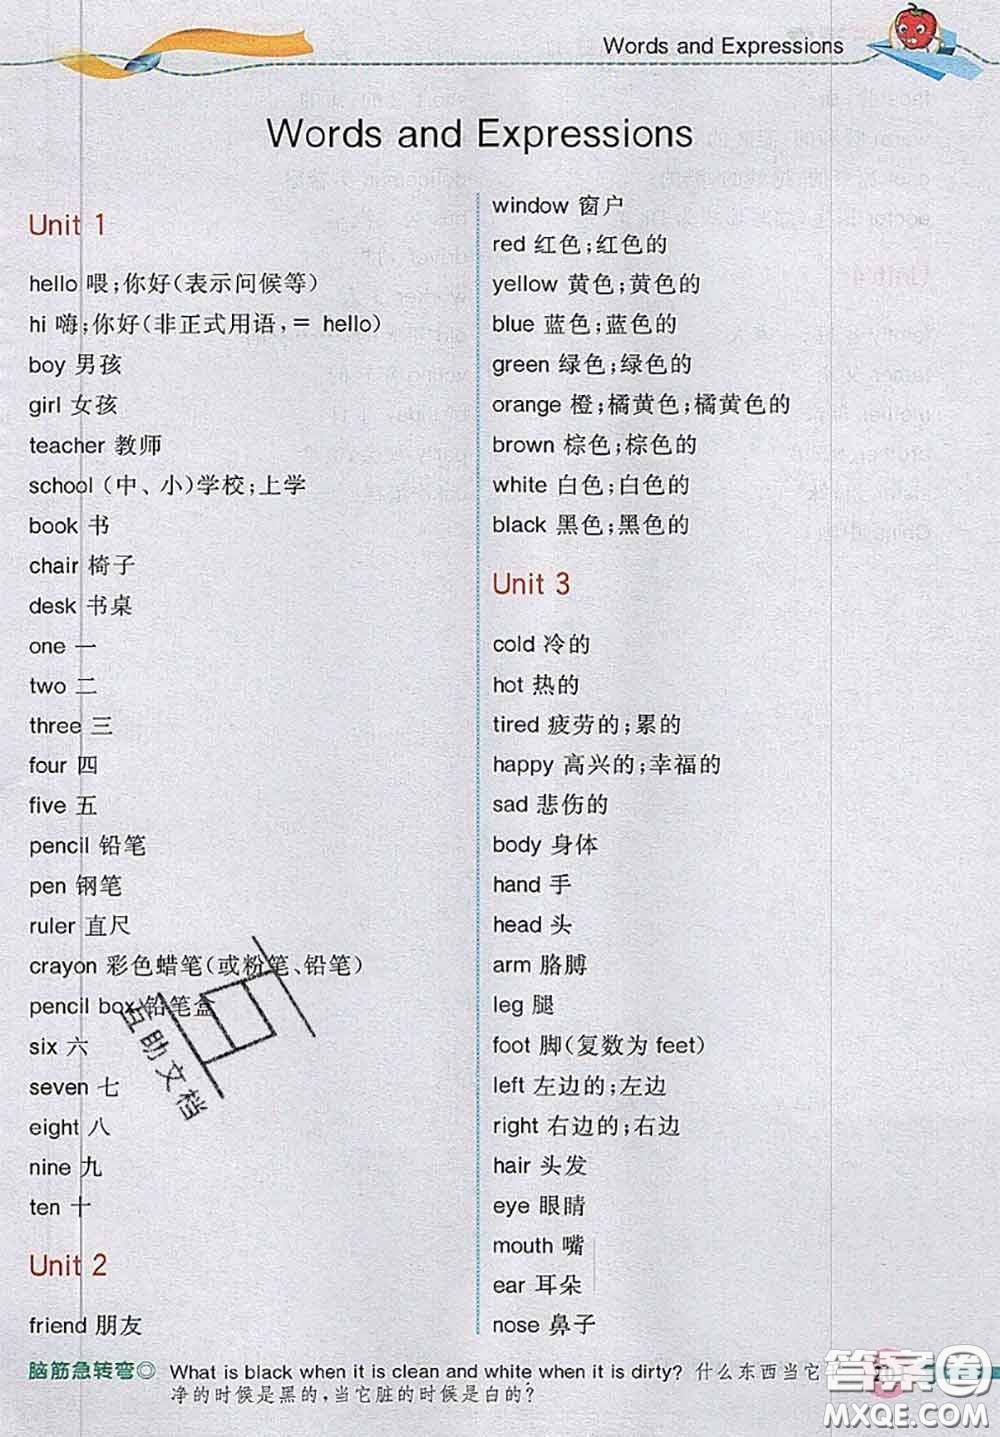 Words and Expressions
Words and Expressions
Unit 1
hello 喂;你好(表示问候等)
hi 嗨;你好(非正式用语,= hello)
boy 男孩
girl 女孩
teacher 教师
school (中、小)学校;上学
book 书
chair 椅子
desk 书桌
one 一
two 二
three 三
four 四
five 五
pencil 铅笔
pen 钢笔
ruler 直尺
crayon 彩色蜡笔(或粉笔、铅笔)
pencil box 铅笔盒
six 六
seven 七
eight 八
nine 九
ten 十
Unit 2
friend 朋友
window 窗户
red 红色;红色的
yellow 黄色;黄色的
blue 蓝色;蓝色的
green 绿色;绿色的
orange 橙;橘黄色;橘黄色的
brown 棕色;棕色的
white 白色;白色的
black 黑色;黑色的
Unit 3
cold 冷的
hot 热的
tired 疲劳的;累的
happy 高兴的;幸福的
sad 悲伤的
body 身体
hand 手
head 头
arm 胳膊
leg 腿
foot 脚(复数为 feet)
left 左边的;左边
right 右边的;右边
hair 头发
eye 眼睛
mouth 嘴
ear 耳朵
nose 鼻子
互助文档
脑筋急转弯◎ What is black when it is clean and white when it is dirty? 什么东西当它
净的时候是黑的,当它脏的时候是白的?
答案圈
MXQE.COM